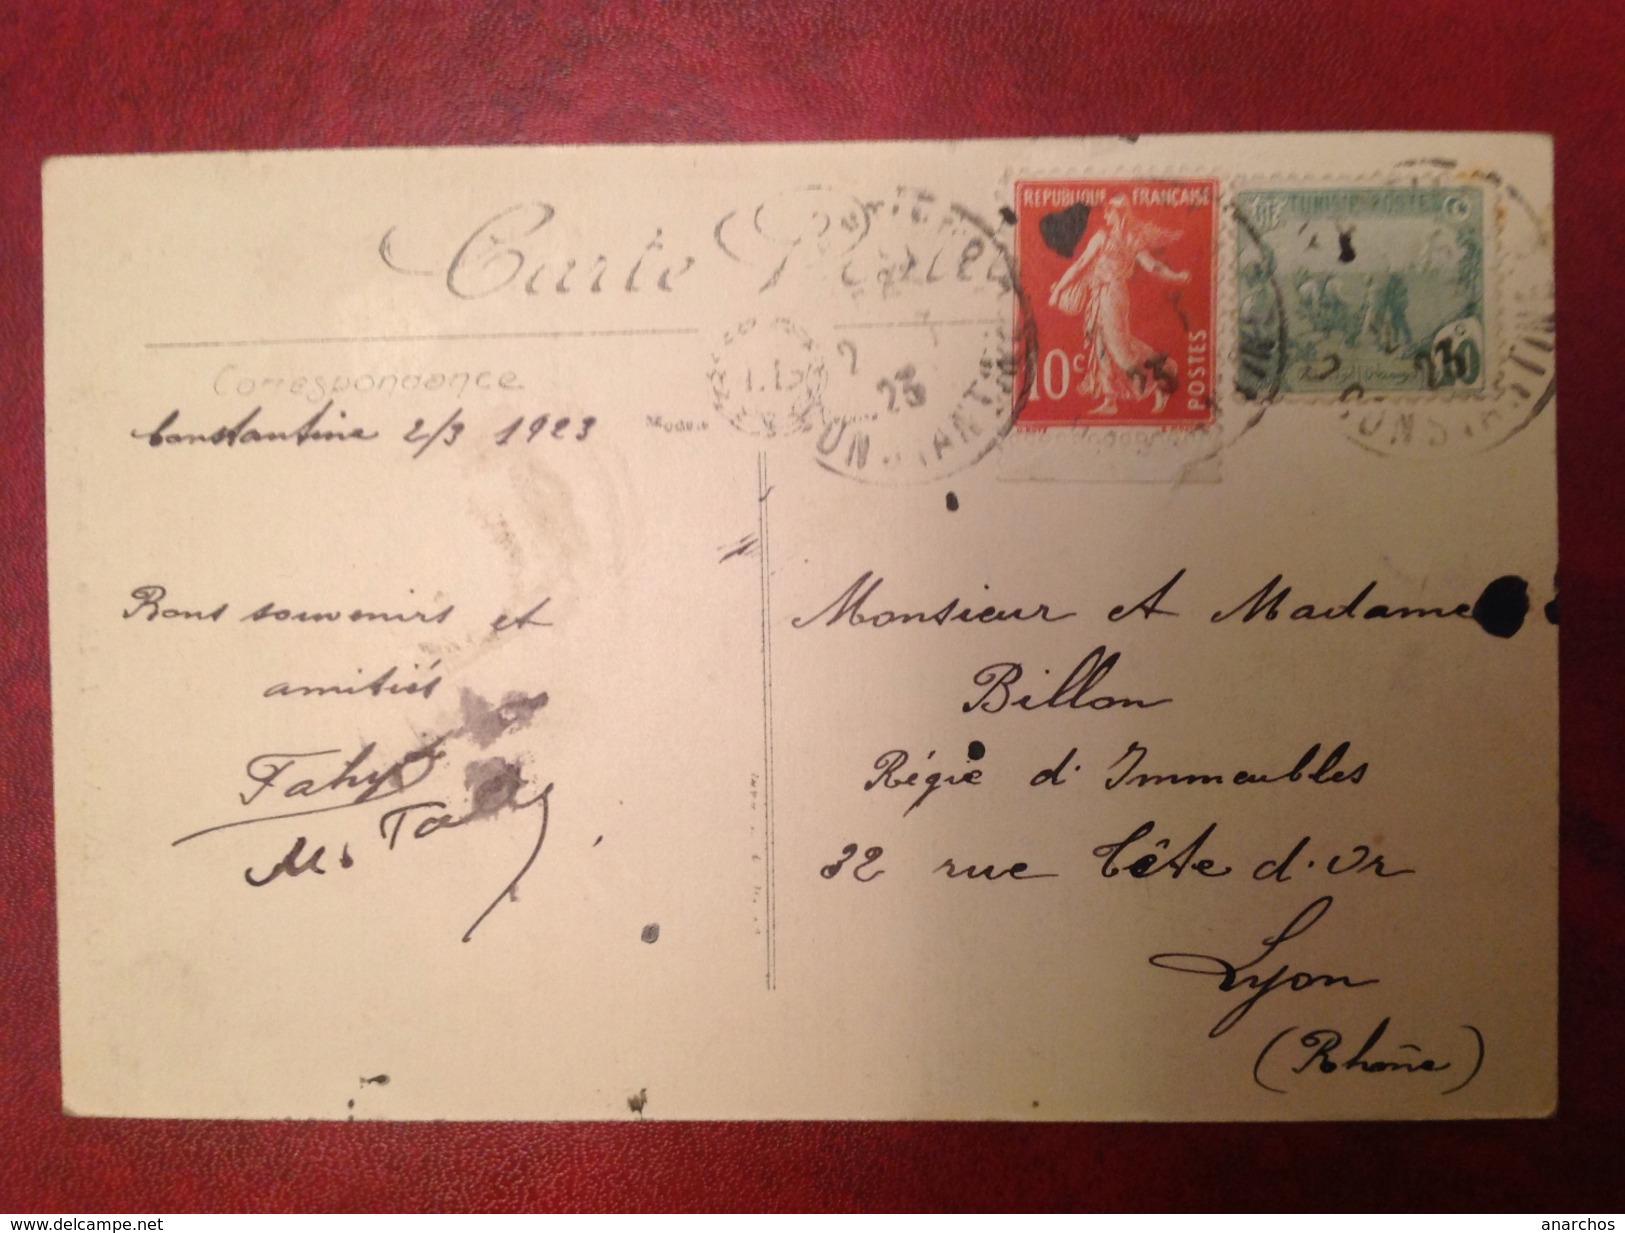 Carte Postale
RÉPUBLIQUE FRANÇAISE
10c
POSTES
TUNISIE POSTES
Correspondance
Constantine 2/3 1923
2
23
23
23
Bons souvenirs et
amitiés
Fahy
Monsieur et Madame
Billon
Régie d'Immeubles
32 rue Côte d'Or
Lyon
(Rhône)
www.delcampe.net
anarchos